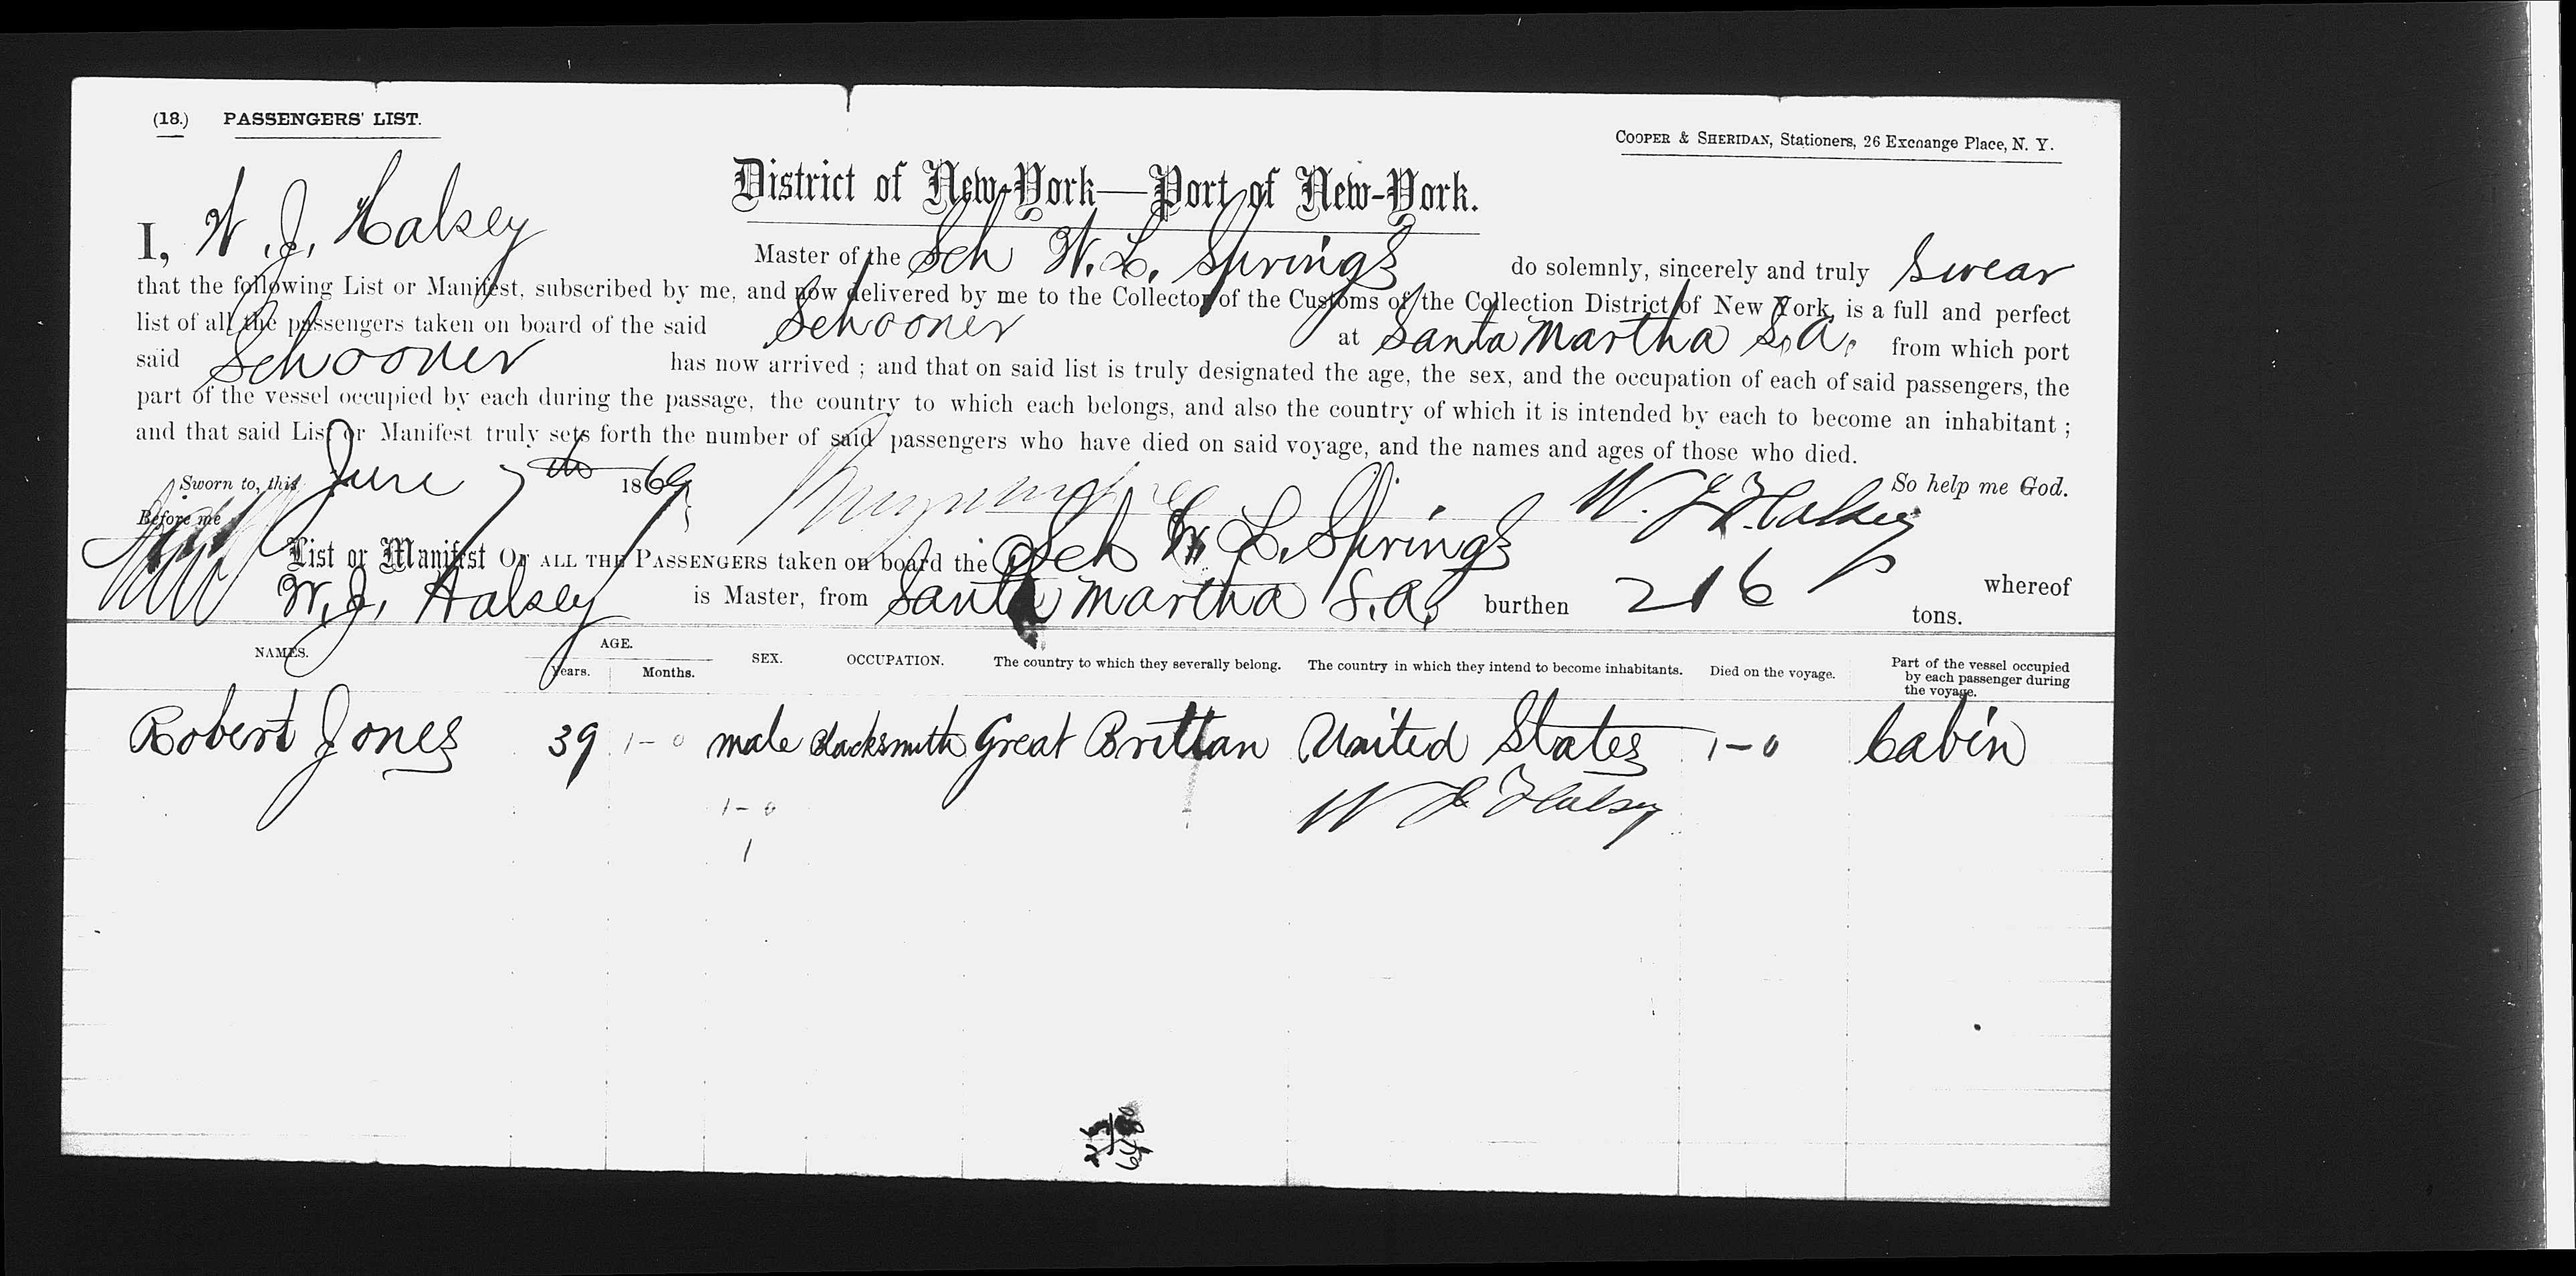 (18.) PASSENGERS' LIST.
COOPER & SHERIDAN, Stationers, 26 Exchange Place, N. Y.
District of New-York—Port of New-York.
I, W. J. Halsey Master of the Sch W. L. Springs do solemnly, sincerely and truly Swear
that the following List or Manifest, subscribed by me, and now delivered by me to the Collector of the Customs of the Collection District of New York, is a full and perfect
list of all the passengers taken on board of the said Schooner at Santa Martha S.A. from which port
said Schooner has now arrived ; and that on said list is truly designated the age, the sex, and the occupation of each of said passengers, the
part of the vessel occupied by each during the passage, the country to which each belongs, and also the country of which it is intended by each to become an inhabitant ;
and that said List or Manifest truly sets forth the number of said passengers who have died on said voyage, and the names and ages of those who died.
Sworn to, this June 7th 1869 W. J. Halsey So help me God.
Before me
List or Manifest OF ALL THE PASSENGERS taken on board the Sch W L. Springs whereof
W. J. Halsey is Master, from Santa Martha S.A. burthen 216 tons.
NAMES. AGE. Years. Months. SEX. OCCUPATION. The country to which they severally belong. The country in which they intend to become inhabitants. Died on the voyage. Part of the vessel occupied by each passenger during the voyage.
Robert Jones 39 1-0 male Blacksmith Great Brittan United States 1-0 Cabin
1-0 W J Halsey
1